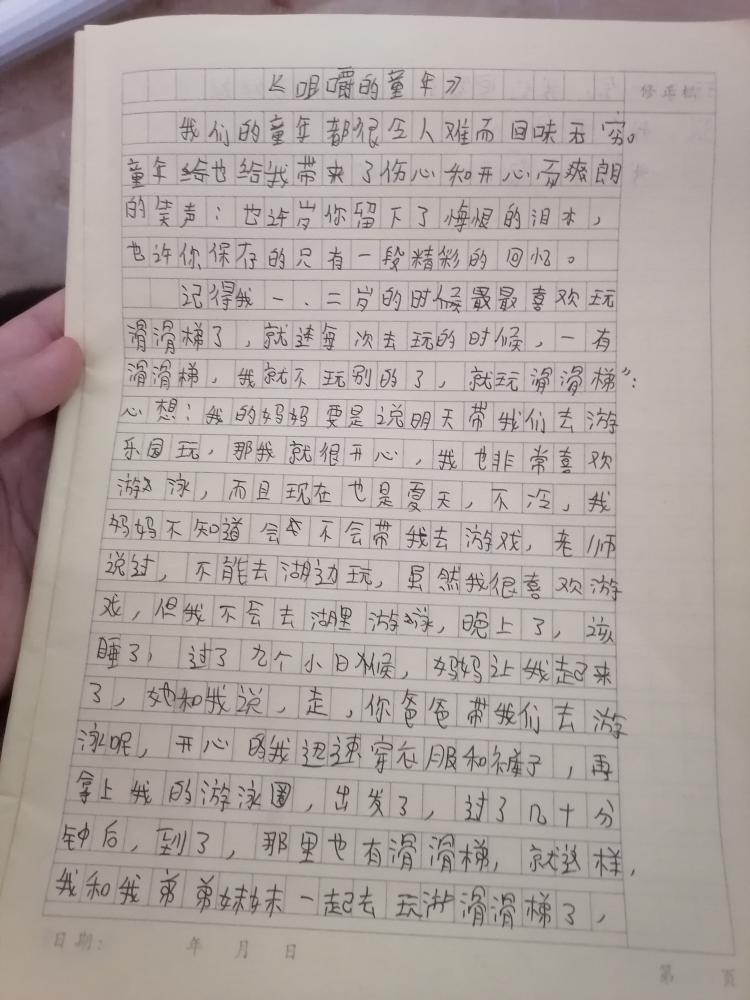 《咀嚼的童年》
修正栏
我们的童年都很令人难而回味无穷。
童年给也给我带来了伤心和开心而爽朗
的笑声：也许岁你留下了悔恨的泪水，
也许你保存的只有一段精彩的回忆。
记得我一、二岁的时候最最喜欢玩
滑滑梯了，就连每次去玩的时候，一有
滑滑梯，我就不玩别的了，就玩滑滑梯”：
心想：我的妈妈要是说明天带我们去游
乐园玩，那我就很开心，我也非常喜欢
游泳，而且现在也是夏天，不冷，我
妈妈不知道会不会带我去游戏，老师
说过，不能去湖边玩，虽然我很喜欢游
戏，但我不会去湖里游泳，晚上了，该
睡了，过了九个小时候，妈妈让我起来
了，她和我说，走，你爸爸带我们去游
泳呢，开心的我迅速穿衣服和裤子，再
拿上我的游泳圈，出发了，过了几十分
钟后，到了，那里也有滑滑梯，就这样，
我和我弟弟妹妹一起去玩滑滑梯了，
日期： 年 月 日
第 页